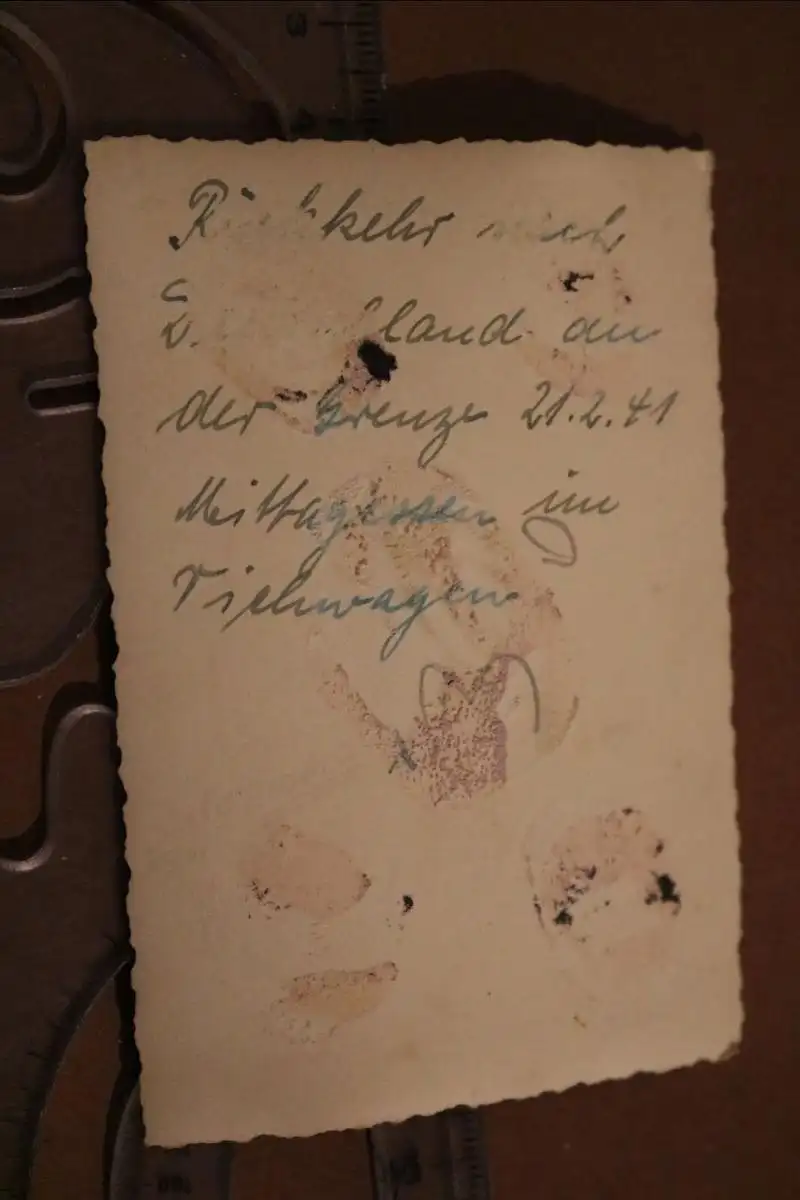 Rückkehr nach
Deutschland an
der Grenze 21.2.41
Mittagessen im
Viehwagen